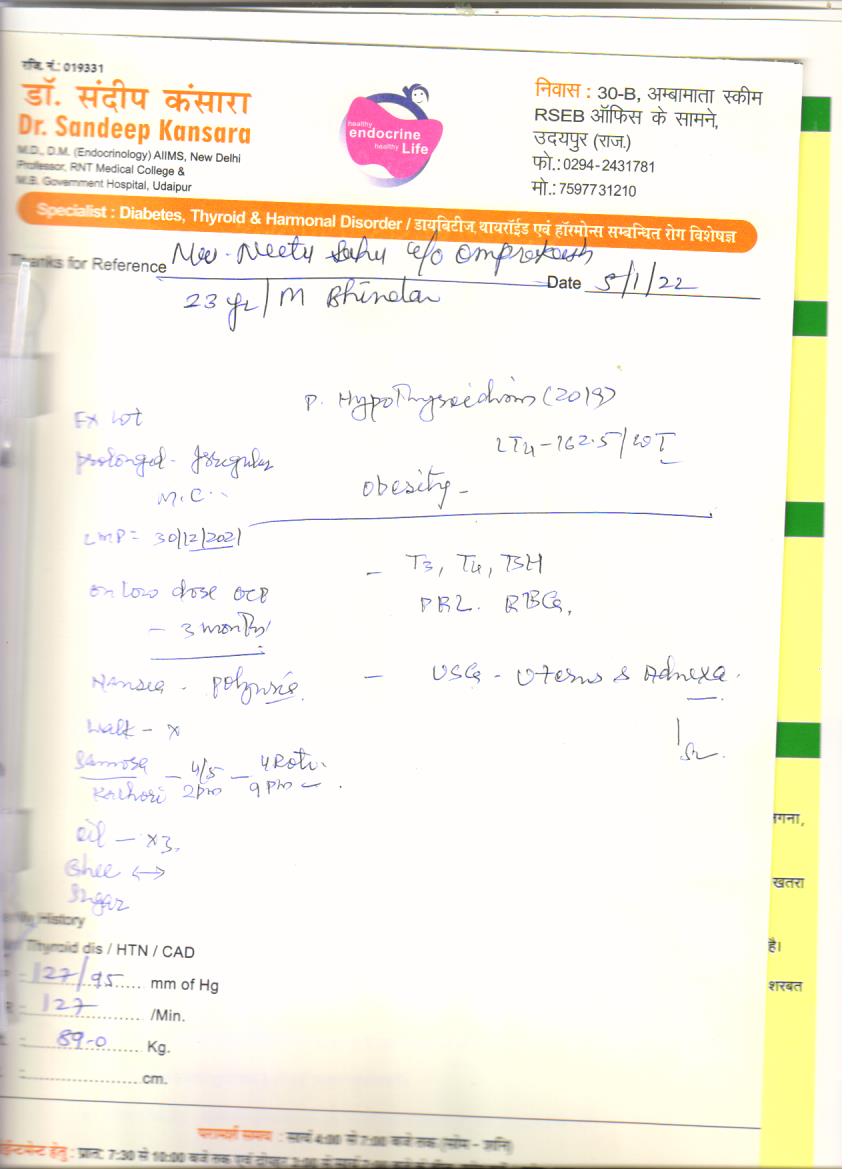 रजि. नं.: 019331
डॉ. संदीप कंसारा
Dr. Sandeep Kansara
M.D., D.M. (Endocrinology) AIIMS, New Delhi
Professor, RNT Medical College &
M.B. Government Hospital, Udaipur
healthy
endocrine
healthy Life
निवास : 30-B, अम्बामाता स्कीम
RSEB ऑफिस के सामने,
उदयपुर (राज.)
फो.: 0294-2431781
मो.: 7597731210
Specialist : Diabetes, Thyroid & Harmonal Disorder / डायबिटीज, थायरॉईड एवं हॉरमोन्स सम्बन्धित रोग विशेषज्ञ
Thanks for Reference Neetu Sahu c/o Omprakash
Date 5/1/22
23 yr / M Bhindar
P. Hypothyroidism (2019)
LT4 - 162.5/
Obesity -
prolonged - Irregular
M.C.
LMP = 30/12/2021
on low dose OCP
- 3 months
- T3, T4, TSH
PRL. RBG,
Nausea - polyuria
- USG - Uterus & Adnexa.
Walk - x
Samosa
Kachori
- 4/5 - 4 Roti
2 pm 9 pm
oil - x3.
Ghee ↔
Sugar
History
Thyroid dis / HTN / CAD
127/95 mm of Hg
127 /Min.
89.0 Kg.
cm.
गना,
खतरा
है।
शरबत
परामर्श समय : सायं 4:00 से 7:00 बजे तक (सोम - शनि)
प्रात: 7:30 से 10:00 बजे तक एवं दोपहर